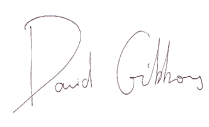 David Gibbons